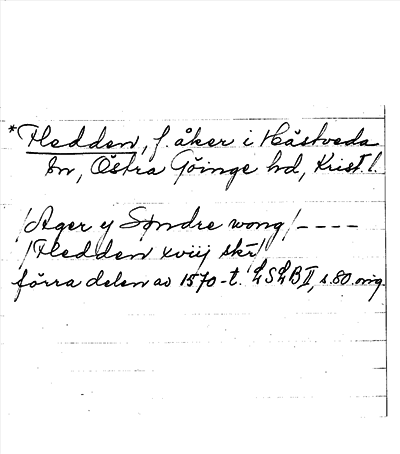 *Fledden, f. åker i Hästveda
sn, Östra Göinge hd, Krist. l.
/Ager y Søndre wong/ - - - -
/Fledden xviij skr/
förra delen av 1570-t. LSLB II, s. 80 orig.